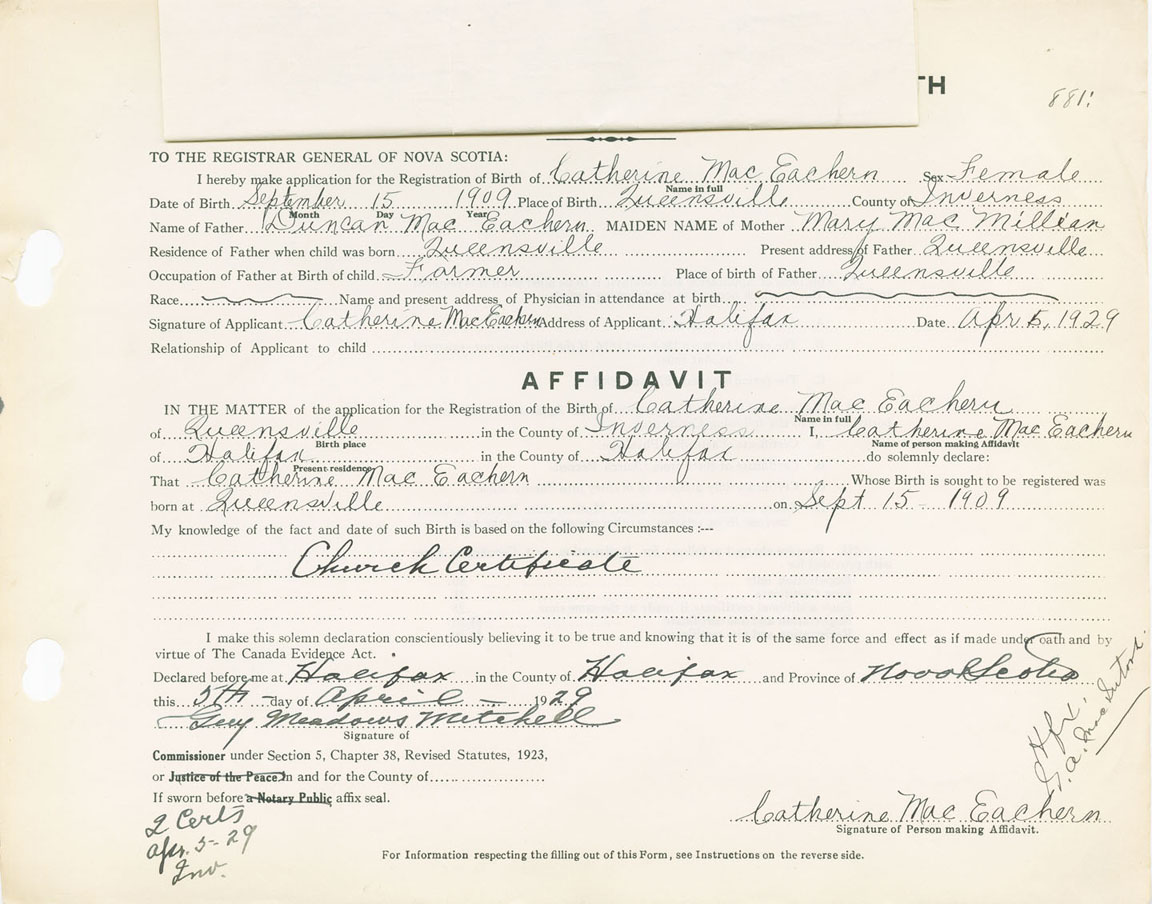 TH
881
TO THE REGISTRAR GENERAL OF NOVA SCOTIA:
I hereby make application for the Registration of Birth of Catherine Mac Eachern Sex Female
Name in full
Date of Birth September 15 1909 Place of Birth Queensville County of Inverness
Month Day Year
Name of Father Duncan Mac Eachern MAIDEN NAME of Mother Mary Mac Millian
Residence of Father when child was born Queensville Present address of Father Queensville
Occupation of Father at Birth of child Farmer Place of birth of Father Queensville
Race Name and present address of Physician in attendance at birth
Signature of Applicant Catherine MacEachern Address of Applicant Halifax Date Apr. 5, 1929
Relationship of Applicant to child
AFFIDAVIT
IN THE MATTER of the application for the Registration of the Birth of Catherine Mac Eachern
Name in full
of Queensville in the County of Inverness I, Catherine Mac Eachern
Birth place Name of person making Affidavit
of Halifax in the County of Halifax do solemnly declare:
Present residence
That Catherine Mac Eachern Whose Birth is sought to be registered was
born at Queensville on Sept 15 - 1909
My knowledge of the fact and date of such Birth is based on the following Circumstances :---
Church Certificate
I make this solemn declaration conscientiously believing it to be true and knowing that it is of the same force and effect as if made under oath and by
virtue of The Canada Evidence Act.
Declared before me at Halifax in the County of Halifax and Province of Nova Scotia
this 5th day of April 1929
Guy Meadows Mitchell
Signature of
Commissioner under Section 5, Chapter 38, Revised Statutes, 1923,
or Justice of the Peace in and for the County of
If sworn before a Notary Public affix seal.
2 Certs
Apr. 5-29
Inv.
Catherine Mac Eachern
Signature of Person making Affidavit.
For Information respecting the filling out of this Form, see Instructions on the reverse side.